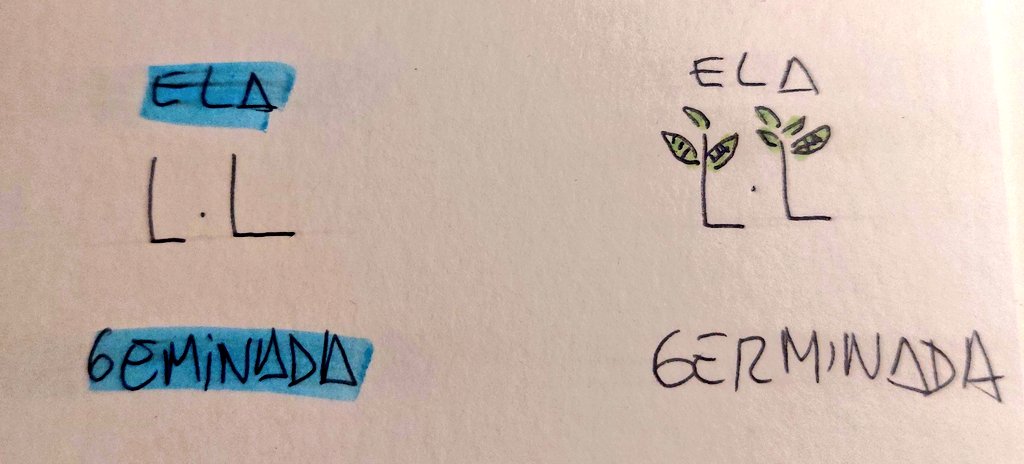 ELA
L·L
GEMINADA
ELA
L·L
GERMINADA